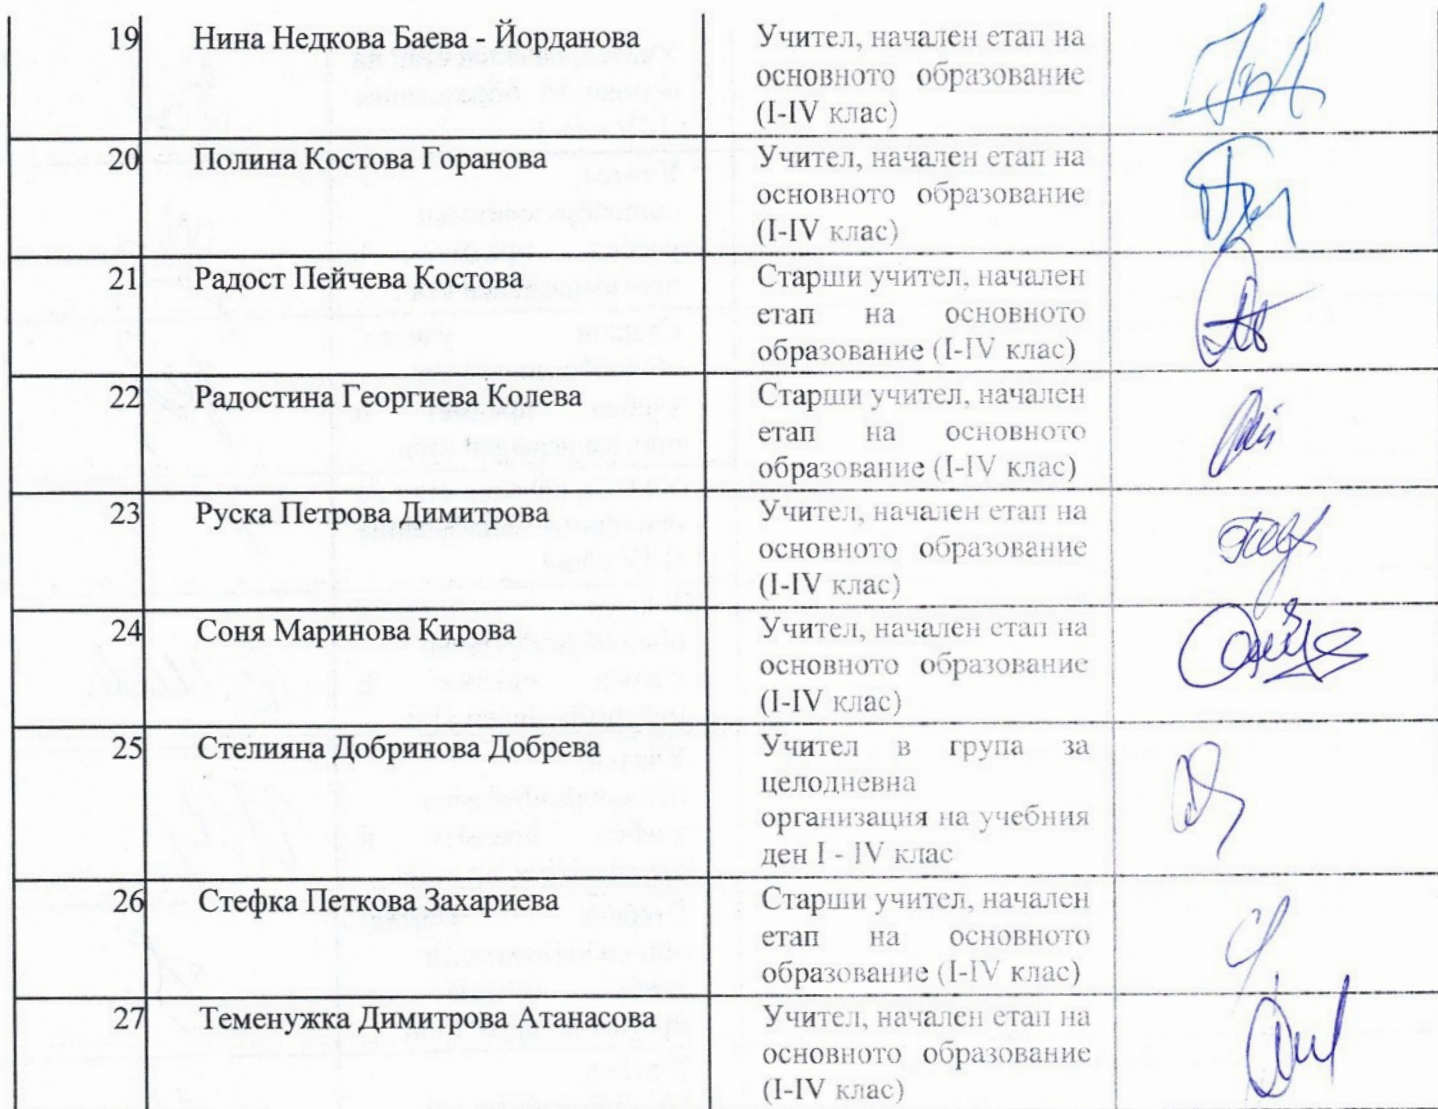 19 Нина Недкова Баева - Йорданова Учител, начален етап на
основното образование
(I-IV клас)
20 Полина Костова Горанова Учител, начален етап на
основното образование
(I-IV клас)
21 Радост Пейчева Костова Старши учител, начален
етап на основното
образование (I-IV клас)
22 Радостина Георгиева Колева Старши учител, начален
етап на основното
образование (I-IV клас)
23 Руска Петрова Димитрова Учител, начален етап на
основното образование
(I-IV клас)
24 Соня Маринова Кирова Учител, начален етап на
основното образование
(I-IV клас)
25 Стелияна Добринова Добрева Учител в група за
целодневна
организация на учебния
ден I - IV клас
26 Стефка Петкова Захариева Старши учител, начален
етап на основното
образование (I-IV клас)
27 Теменужка Димитрова Атанасова Учител, начален етап на
основното образование
(I-IV клас)